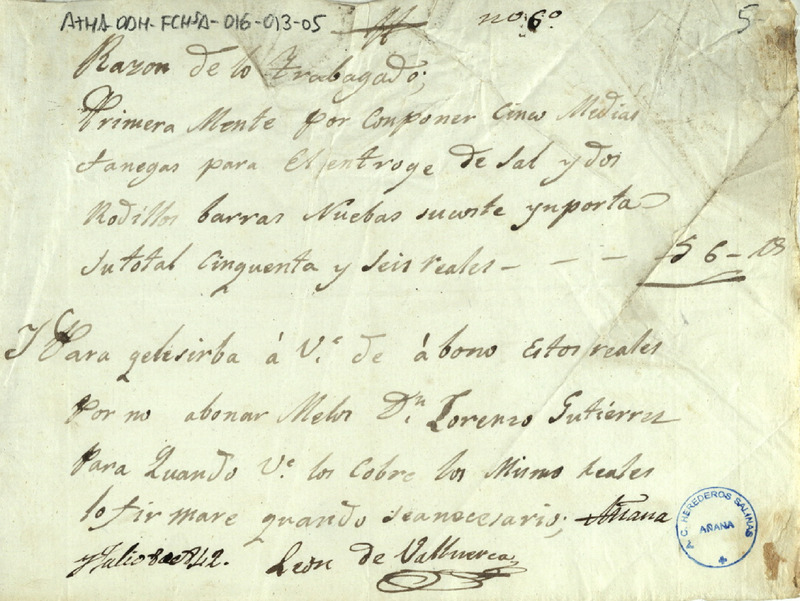 ATHA-DDH-FCHSA-016-013-05
nº 6º
5
Razon de lo trabagado;
Primera Mente por Conponer Cinco Medias
fanegas para El entroge de Sal y dos
Rodillos barras Nuebas su coste ynporta
su total Cinquenta y Seis reales - - - - 56 - rs
Y Para qe le sirba á V.e de ábono Estos reales
Por no abonar Melos Dn. Lorenzo Gutierrez
Para Quando V.e los Cobre los Mismos Reales
lo firmare quando sea necesario; Añana
y Julio 8 de 842. Leon de Valluerca
A.C. HEREDEROS SALINAS
AÑANA